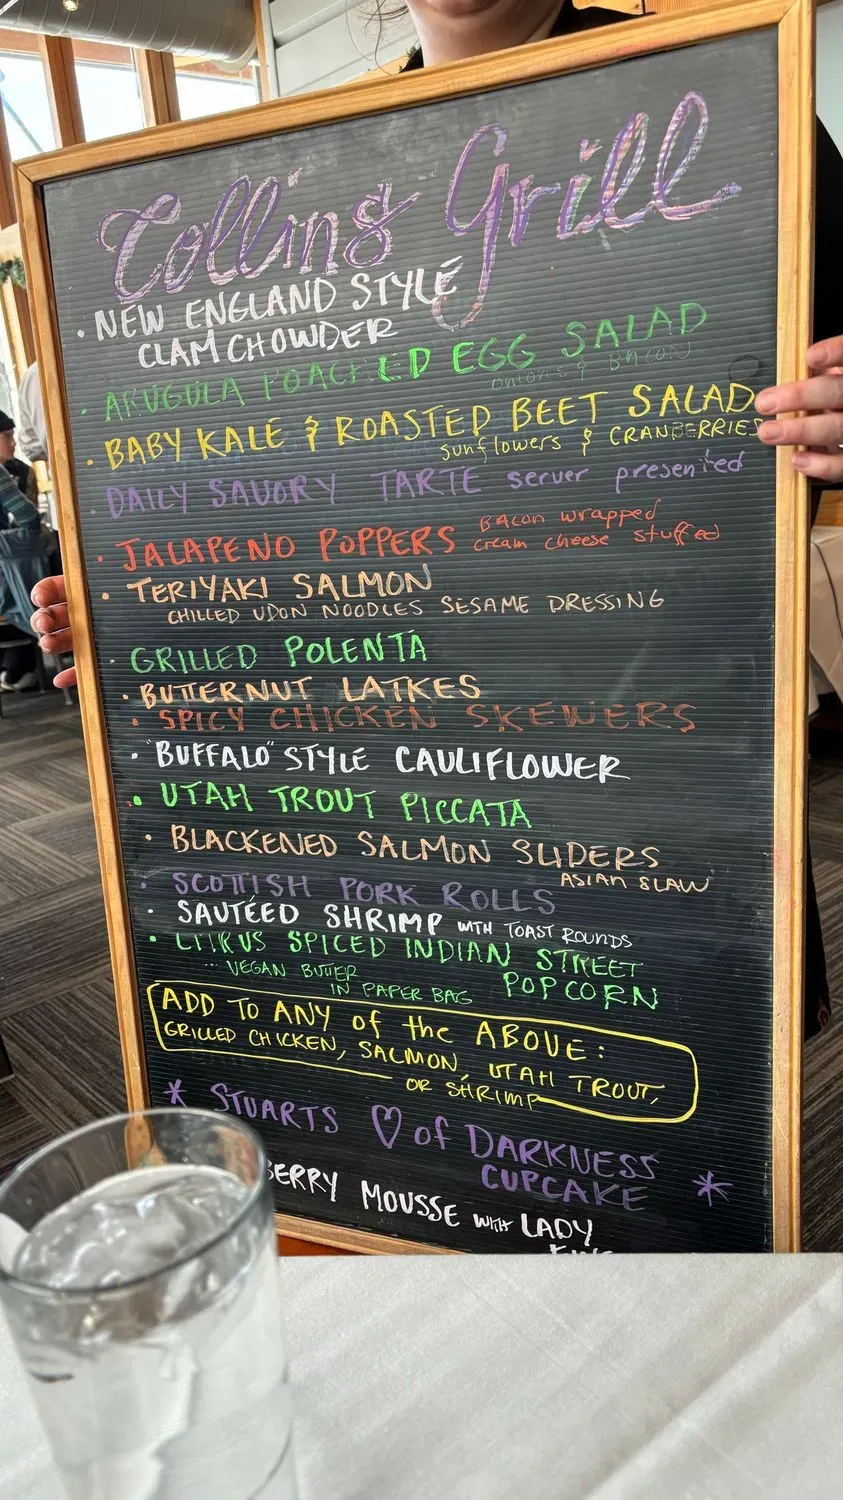 Collins Grill
• NEW ENGLAND STYLE
CLAM CHOWDER
• ARUGULA POACHED EGG SALAD
onions & BACON
• BABY KALE & ROASTED BEET SALAD
sunflowers & CRANBERRIES
• DAILY SAVORY TARTE server presented
• JALAPENO POPPERS BACON wrapped
cream cheese stuffed
• TERIYAKI SALMON
CHILLED UDON NOODLES SESAME DRESSING
• GRILLED POLENTA
• BUTTERNUT LATKES
• SPICY CHICKEN SKEWERS
• "BUFFALO" STYLE CAULIFLOWER
• UTAH TROUT PICCATA
• BLACKENED SALMON SLIDERS
ASIAN SLAW
• SCOTTISH PORK ROLLS
• SAUTÉED SHRIMP WITH TOAST ROUNDS
• CITRUS SPICED INDIAN STREET
POPCORN
... VEGAN BUTTER
IN PAPER BAG
ADD TO ANY of the ABOVE:
GRILLED CHICKEN, SALMON, UTAH TROUT,
OR SHRIMP
* STUARTS ♡ of DARKNESS
CUPCAKE *
BERRY MOUSSE WITH LADY